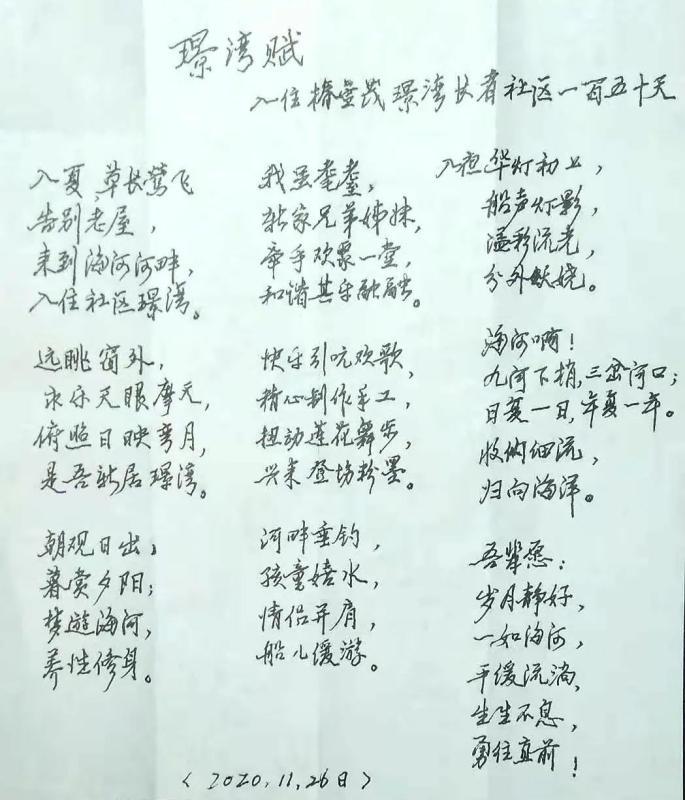 璟湾赋
入住椿萱茂璟湾长者社区一百五十天
入夏,草长莺飞
告别老屋,
来到海河河畔,
入住社区璟湾。
远眺窗外,
永乐天眼摩天,
俯照日映弯月,
是吾新居璟湾。
朝观日出;
暮赏夕阳;
梦遊海河,
养性修身。
我虽耄耋,
新家兄弟姊妹,
牵手欢聚一堂,
和谐其乐融融。
快乐引吭欢歌,
精心制作手工,
扭动莲花舞步,
兴来登场粉墨。
河畔垂钓,
孩童嬉水,
情侣并肩,
船儿缓游。
入夜华灯初上,
船声灯影,
溢彩流光,
分外妖娆。
海河啊!
九河下梢,三岔河口;
日复一日,年复一年。
收纳细流,
归向海洋。
吾辈愿:
岁月静好,
一如海河,
平缓流淌,
生生不息,
勇往直前!
(2020,11,26日)